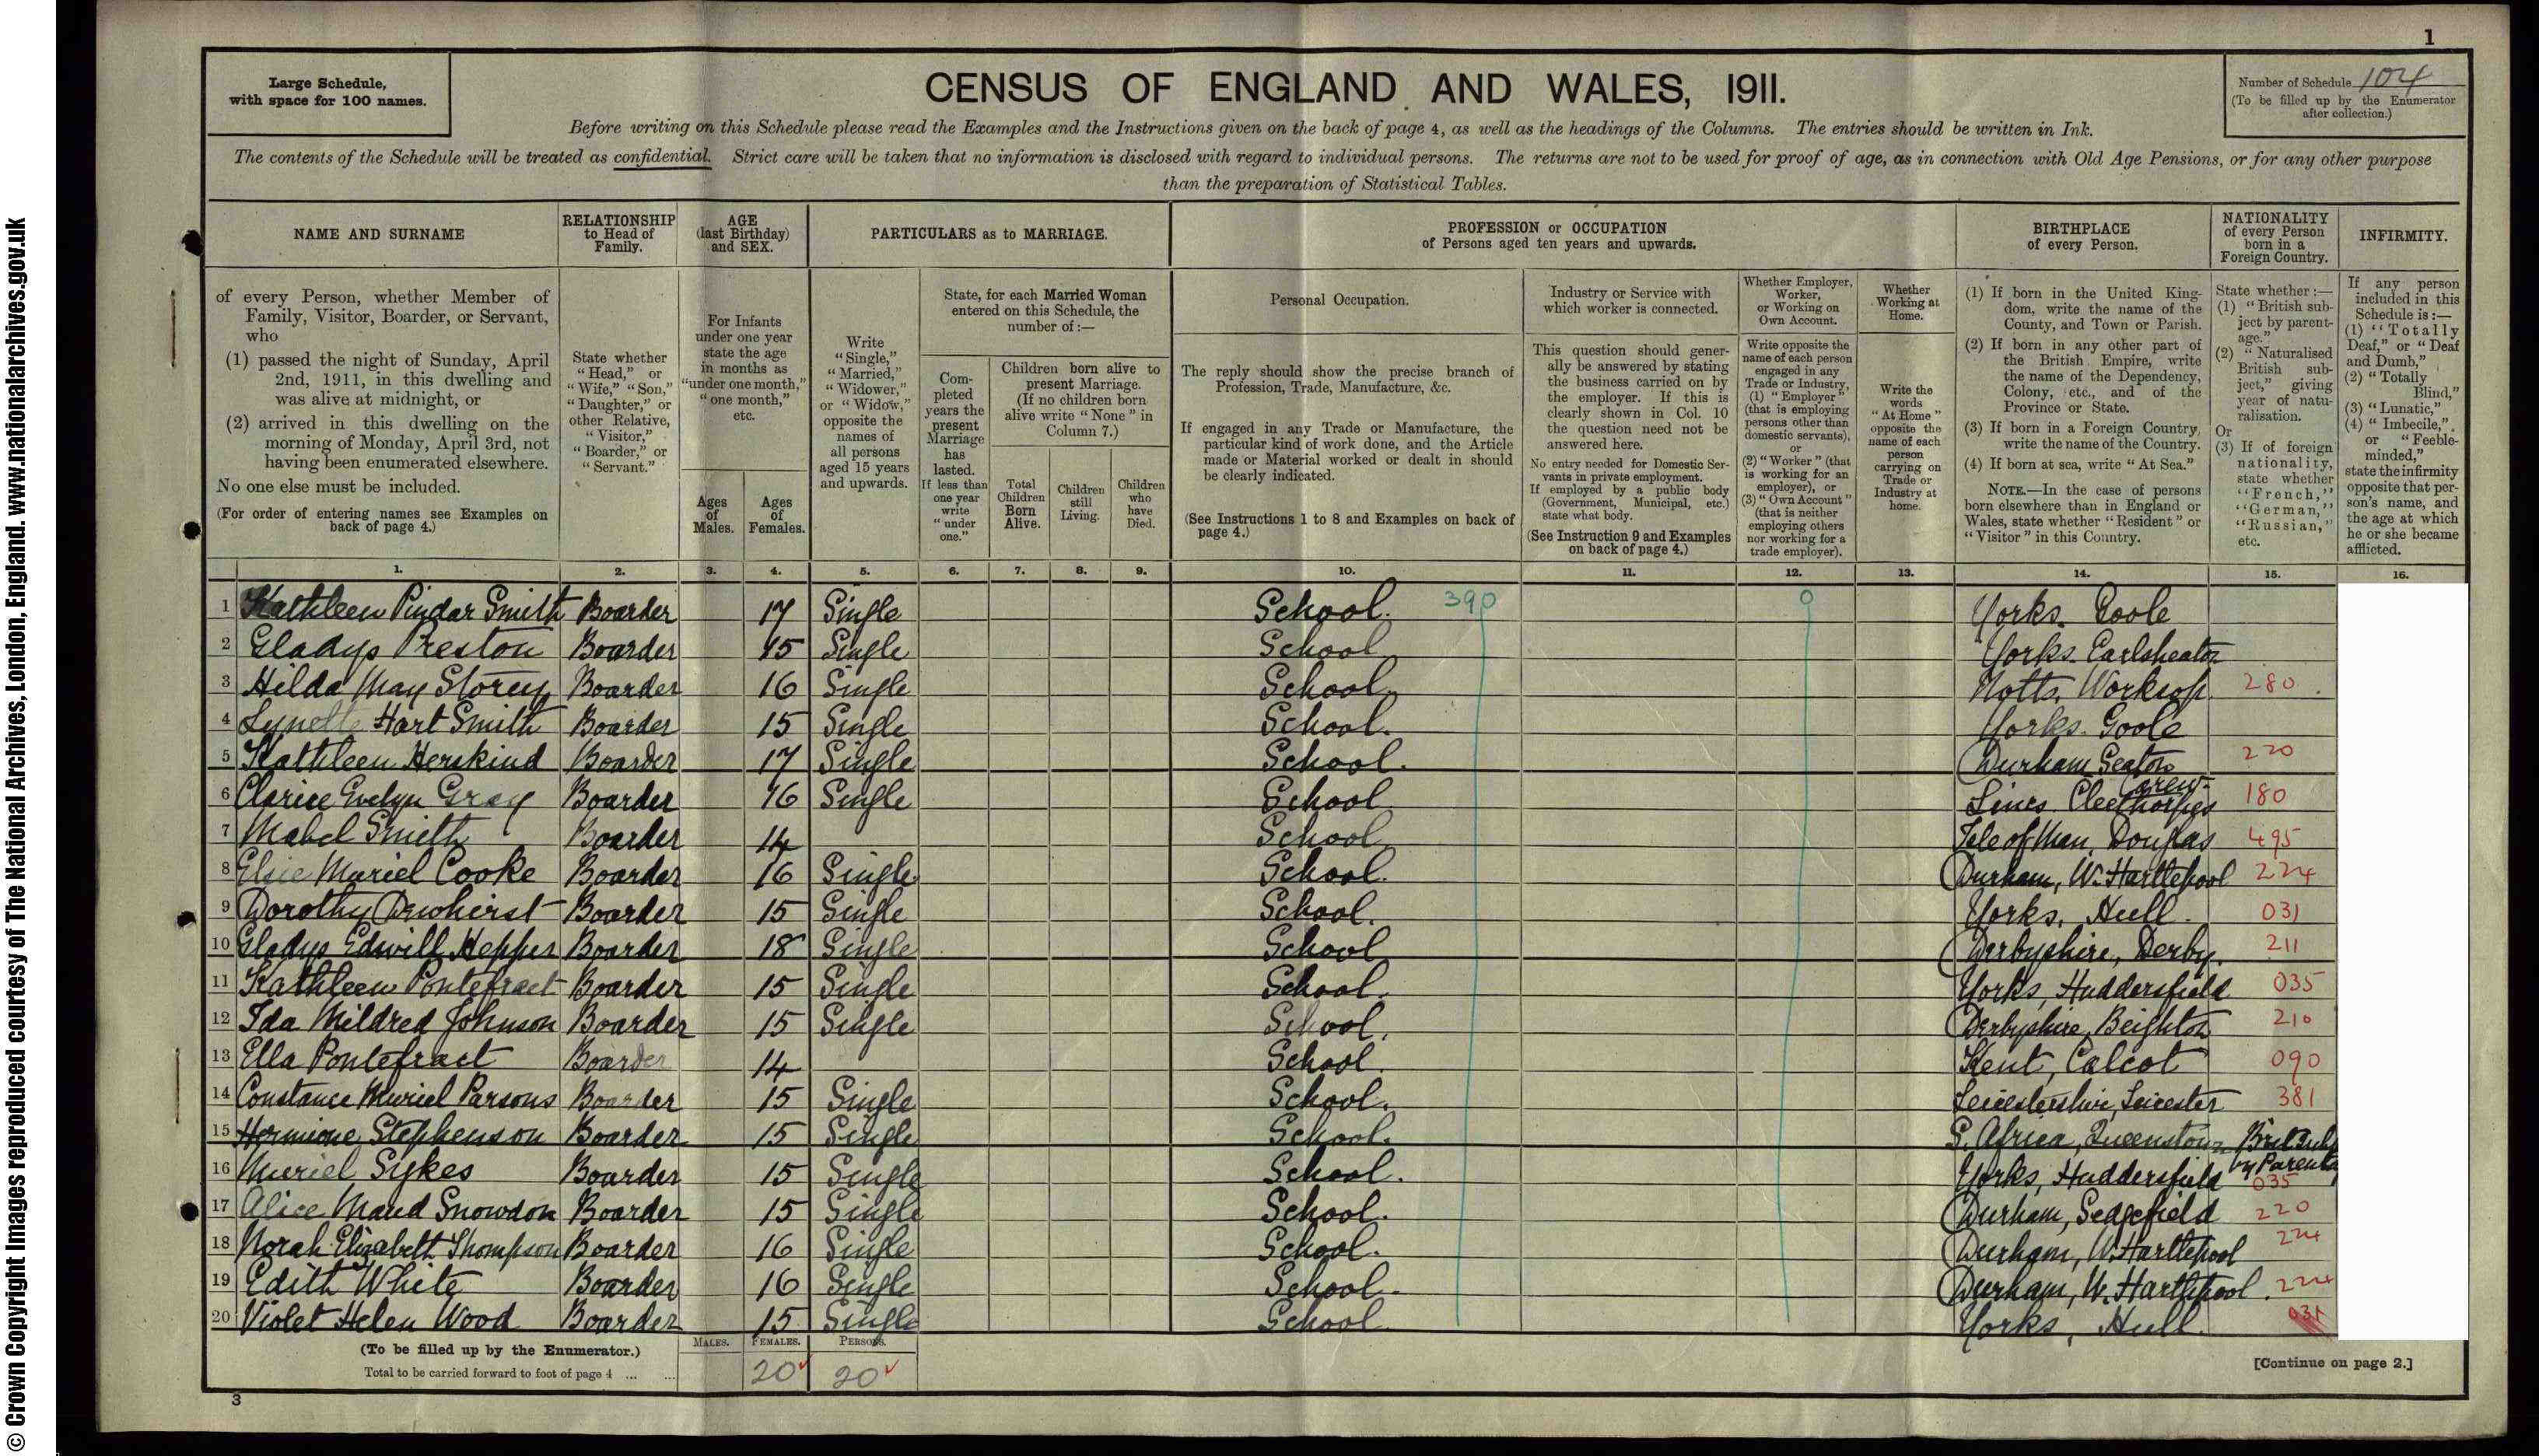 1
Large Schedule,
with space for 100 names.
CENSUS OF ENGLAND AND WALES, 1911.
Number of Schedule 104
(To be filled up by the Enumerator
after collection.)
Before writing on this Schedule please read the Examples and the Instructions given on the back of page 4, as well as the headings of the Columns. The entries should be written in Ink.
The contents of the Schedule will be treated as confidential. Strict care will be taken that no information is disclosed with regard to individual persons. The returns are not to be used for proof of age, as in connection with Old Age Pensions, or for any other purpose
than the preparation of Statistical Tables.
NAME AND SURNAME
of every Person, whether Member of
Family, Visitor, Boarder, or Servant,
who
(1) passed the night of Sunday, April
2nd, 1911, in this dwelling and
was alive at midnight, or
(2) arrived in this dwelling on the
morning of Monday, April 3rd, not
having been enumerated elsewhere.
No one else must be included.
(For order of entering names see Examples on
back of page 4.)
RELATIONSHIP
to Head of
Family.
State whether
"Head," or
"Wife," "Son,"
"Daughter," or
other Relative,
"Visitor,"
"Boarder," or
"Servant."
AGE
(last Birthday)
and SEX.
For Infants
under one year
state the age
in months as
"under one month,"
"one month,"
etc.
Ages
of
Males.
Ages
of
Females.
PARTICULARS as to MARRIAGE.
Write
"Single,"
"Married,"
"Widower,"
or "Widow,"
opposite the
names of
all persons
aged 15 years
and upwards.
State, for each Married Woman
entered on this Schedule, the
number of :—
Com-
pleted
years the
present
Marriage
has
lasted.
If less than
one year
write
"under
one."
Children born alive to
present Marriage.
(If no children born
alive write "None" in
Column 7.)
Total
Children
Born
Alive.
Children
still
Living.
Children
who
have
Died.
PROFESSION or OCCUPATION
of Persons aged ten years and upwards.
Personal Occupation.
The reply should show the precise branch of
Profession, Trade, Manufacture, &c.
If engaged in any Trade or Manufacture, the
particular kind of work done, and the Article
made or Material worked or dealt in should
be clearly indicated.
(See Instructions 1 to 8 and Examples on back of
page 4.)
Industry or Service with
which worker is connected.
This question should gener-
ally be answered by stating
the business carried on by
the employer. If this is
clearly shown in Col. 10
the question need not be
answered here.
No entry needed for Domestic Ser-
vants in private employment.
If employed by a public body
(Government, Municipal, etc.)
state what body.
(See Instruction 9 and Examples
on back of page 4.)
Whether Employer,
Worker,
or Working on
Own Account.
Write opposite the
name of each person
engaged in any
Trade or Industry,
(1) "Employer"
(that is employing
persons other than
domestic servants),
or
(2) "Worker" (that
is working for an
employer), or
(3) "Own Account"
(that is neither
employing others
nor working for a
trade employer).
Whether
Working at
Home.
Write the
words
"At Home"
opposite the
name of each
person
carrying on
Trade or
Industry at
home.
BIRTHPLACE
of every Person.
(1) If born in the United King-
dom, write the name of the
County, and Town or Parish.
(2) If born in any other part of
the British Empire, write
the name of the Dependency,
Colony, etc., and of the
Province or State.
(3) If born in a Foreign Country,
write the name of the Country.
(4) If born at sea, write "At Sea."
NOTE.—In the case of persons
born elsewhere than in England or
Wales, state whether "Resident" or
"Visitor" in this Country.
NATIONALITY
of every Person
born in a
Foreign Country.
State whether :—
(1) "British sub-
ject by parent-
age."
(2) "Naturalised
British sub-
ject," giving
year of natu-
ralisation.
Or
(3) If of foreign
nationality,
state whether
"French,"
"German,"
"Russian,"
etc.
INFIRMITY.
If any person
included in this
Schedule is :—
(1) "Totally
Deaf," or "Deaf
and Dumb,"
(2) "Totally
Blind,"
(3) "Lunatic,"
(4) "Imbecile,"
or "Feeble-
minded,"
state the infirmity
opposite that per-
son's name, and
the age at which
he or she became
afflicted.
1. 2. 3. 4. 5. 6. 7. 8. 9. 10. 11. 12. 13. 14. 15. 16.
1 Kathleen Pindar Smith Boarder 17 Single School. 390 0 Yorks. Goole
2 Gladys Preston Boarder 15 Single School Yorks. Earlsheaton
3 Hilda May Storey Boarder 16 Single School. Notts. Worksop. 280
4 Hart Smith Boarder 15 Single School. Yorks. Goole
5 Kathleen Herskind Boarder 17 Single School. Durham Seaton Carew. 220
6 Clarice Evelyn Gray Boarder 16 Single School Lincs. Cleethorpes 180
7 Mabel Smith Boarder 14 School Isle of Man, Douglas 495
8 Elsie Muriel Cooke Boarder 16 Single School. Durham, W. Hartlepool 224
9 Dorothy Dewhirst Boarder 15 Single School. Yorks, Hull. 031
10 Gladys Hepper Boarder 18 Single School Derbyshire, Derby. 211
11 Kathleen Pontefract Boarder 15 Single School. Yorks, Huddersfield 035
12 Ida Mildred Johnson Boarder 15 Single School. Derbyshire, Beighton 210
13 Ella Pontefract Boarder 14 School. Kent, Calcot 090
14 Constance Muriel Parsons Boarder 15 Single School. Leicestershire, Leicester 381
15 Hermione Stephenson Boarder 15 Single School. S. Africa, Queenstown Brit Subj by Parents
16 Muriel Sykes Boarder 15 Single School. Yorks, Huddersfield 035
17 Alice Maud Snowdon Boarder 15 Single School. Durham, Sedgefield 220
18 Norah Elizabeth Thompson Boarder 16 Single School. Durham, W. Hartlepool 224
19 Edith White Boarder 16 Single School. Durham, W. Hartlepool. 224
20 Violet Helen Wood Boarder 15 Single School. Yorks, Hull. 031
(To be filled up by the Enumerator.)
Total to be carried forward to foot of page 4 ... ...
MALES. FEMALES. PERSONS.
20 20
[Continue on page 2.]
3
© Crown Copyright Images reproduced courtesy of The National Archives, London, England. www.nationalarchives.gov.uk